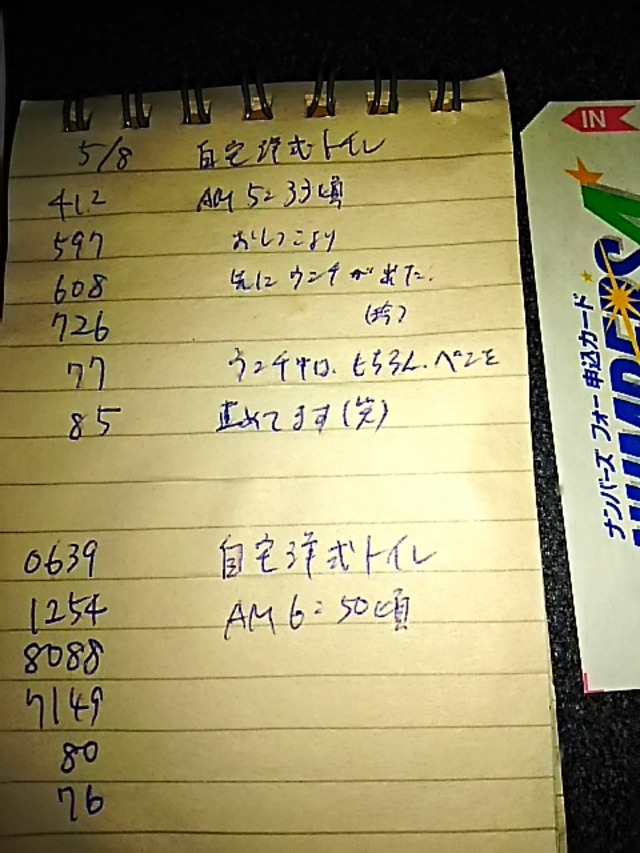 5/8 自宅洋式トイレ
412 AM 5:33頃
597 おしっこより
608 先にウンチが出た.
726
77 ウンチ中は、もちろん、ペンを
85 止めてます(笑)
0639 自宅洋式トイレ
1254 AM 6:50頃
8088
7149
80
76
IN
ナンバーズ フォー 申込カード
NUMBERS4